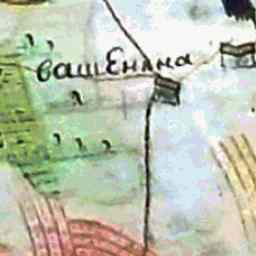 вашЕнана